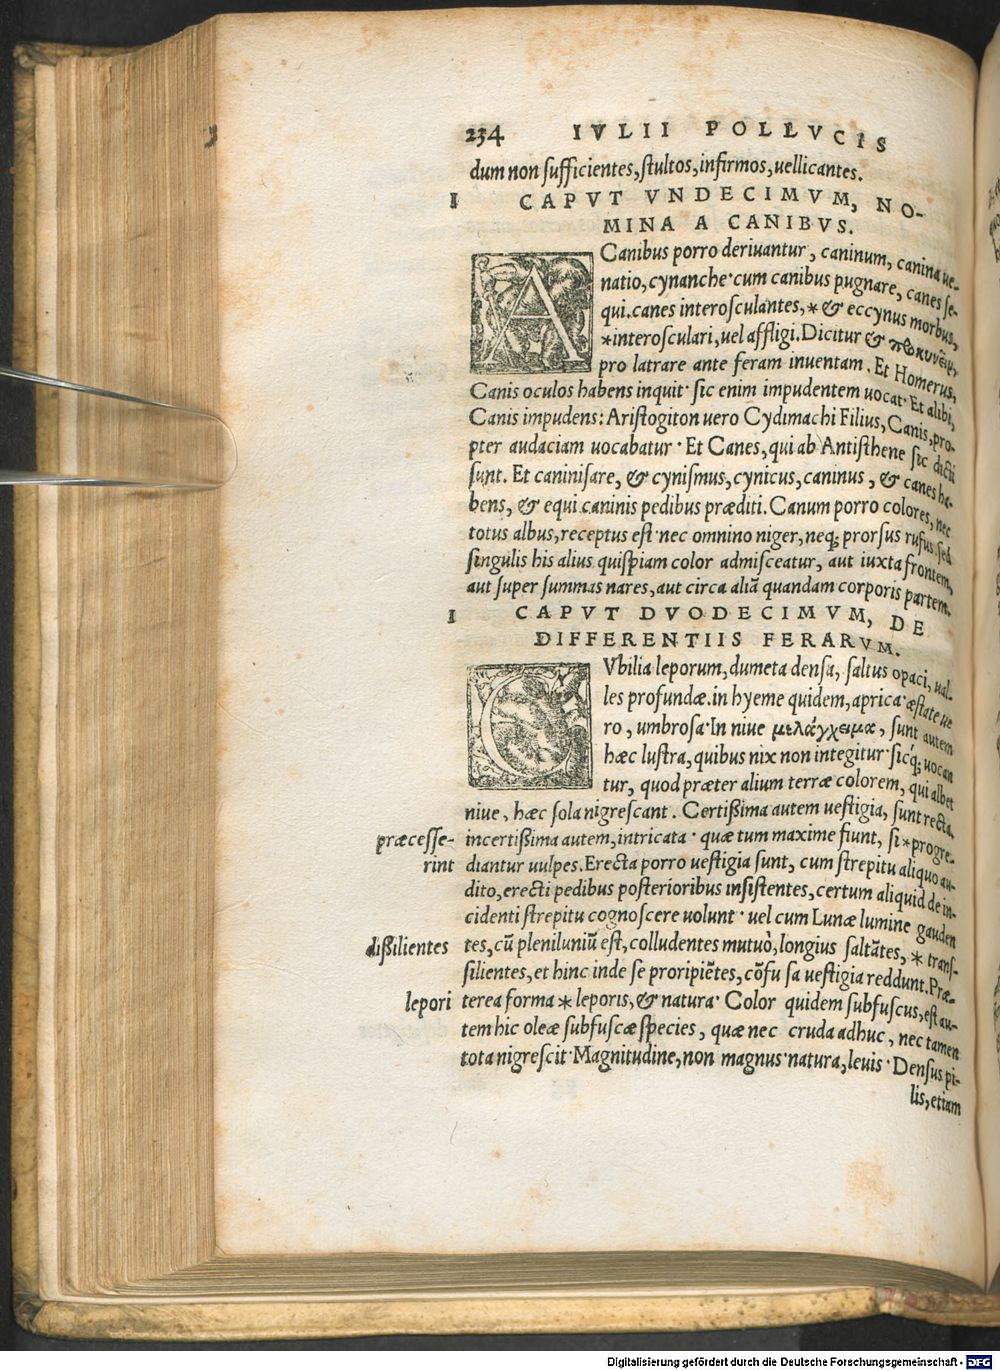 234 IVLII POLLVCIS
dum non sufficientes, stultos, infirmos, uellicantes.
I CAPVT VNDECIMVM, NO-
MINA A CANIBVS.
A Canibus porro deriuantur, caninum, canina ue-
natio, cynanche· cum canibus pugnare, canes se-
qui. canes interosculantes, * & eccynus morbus,
*interosculari, uel affligi. Dicitur &
pro latrare ante feram inuentam. Et Homerus,
Canis oculos habens inquit· sic enim impudentem uocat· Et alibi,
Canis impudens: Aristogiton uero Cydimachi Filius, Canis, pro-
pter audaciam uocabatur· Et Canes, qui ab Antisthene sic dicti
sunt. Et caninisare, & cynismus, cynicus, caninus, & canes ha-
bens, & equi caninis pedibus præditi. Canum porro colores, nec
totus albus, receptus est· nec omnino niger, neq; prorsus rufus. sed
singulis his alius quispiam color admisceatur, aut iuxta frontem,
aut super summas nares, aut circa aliā quandam corporis partem.
I CAPVT DVODECIMVM, DE
DIFFERENTIIS FERARVM.
CVbilia leporum, dumeta densa, saltus opaci, ual-
les profundæ. in hyeme quidem, aprica· æstate ue
ro, umbrosa· In niue μελάγχειμα, sunt autem
hæc lustra, quibus nix non integitur· sicq́; uocan
tur, quod præter alium terræ colorem, qui albet
niue, hæc sola nigrescant. Certißima autem uestigia, sunt recta,
incertißima autem, intricata· quæ tum maxime fiunt, si * progre-
præcesse-
rint
diantur uulpes. Erecta porro uestigia sunt, cum strepitu aliquo au-
dito, erecti pedibus posterioribus insistentes, certum aliquid de in-
cidenti strepitu cognoscere uolunt· uel cum Lunæ lumine gauden
tes, cū pleniluniū est, colludentes mutuò, longius saltātes, * trans-
dißilientes
silientes, et hinc inde se proripiētes, cōfu sa uestigia reddunt. Præ-
terea forma * leporis, & natura· Color quidem subfuscus, est au-
lepori
tem hic oleæ subfuscæ species, quæ nec cruda adhuc, nec tamen
tota nigrescit· Magnitudine, non magnus· natura, leuis· Densus pi-
lis, etiam
Digitalisierung gefördert durch die Deutsche Forschungsgemeinschaft - DFG